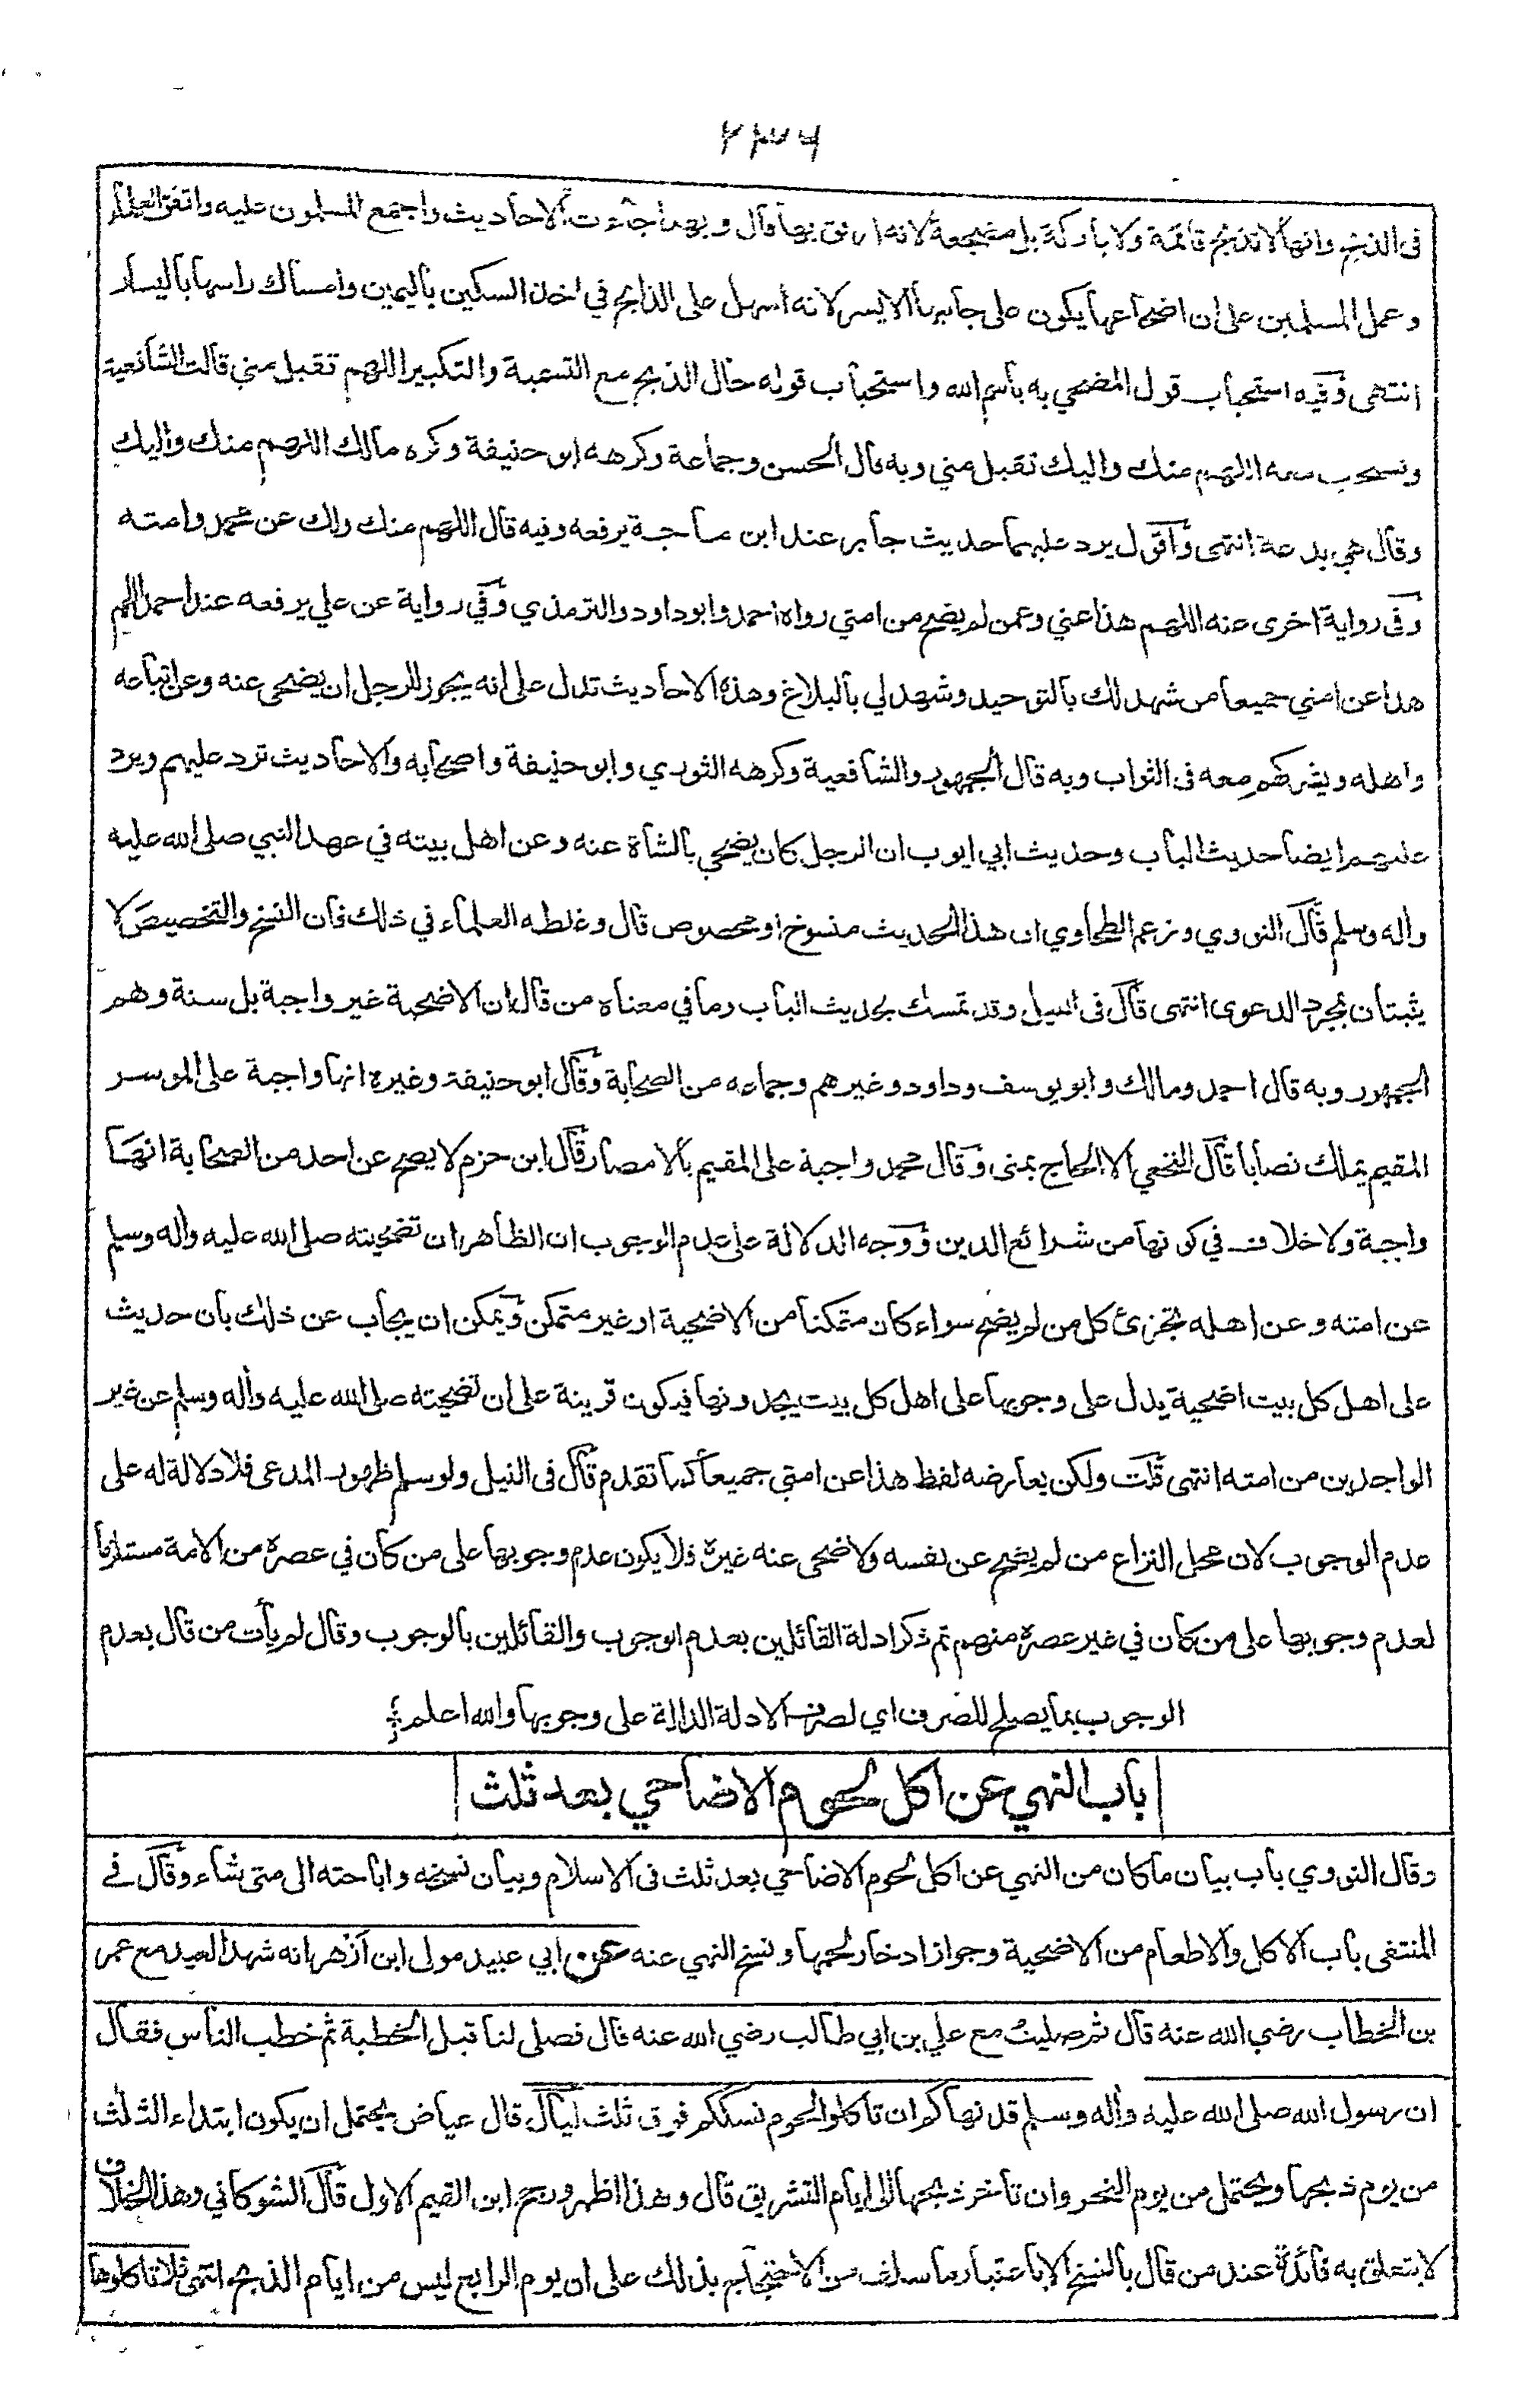 في الذبح وانها لا تذبح قائمة ولا باركة بل مضجعة لانه ارفق بها قال وبهذا جاءت الاحاديث واجمع المسلمون عليه واتفق العلماء
وعمل المسلمين على ان اضجاعها يكون على جانبها الايسر لانه اسهل على الذابح في اخذ السكين باليمين وامساك راسها باليسار
انتهى وفيه استحباب قول المضحي به باسم الله واستحباب قوله حال الذبح مع التسمية والتكبير اللهم تقبل مني قالت الشافعية
ونستحب معه اللهم منك واليك تقبل مني وبه قال الحسن وجماعة وكرهه ابو حنيفة وكره مالك اللهم منك واليك
وقال هي بدعة انتهى واقول يرد عليهما حديث جابر عند ابن ماجة يرفعه وفيه قال اللهم منك ولك عن محمد وامته
وفي رواية اخرى عنه اللهم هذا عني وعمن لم يضح من امتي رواه احمد وابو داود والترمذي وفي رواية عن علي يرفعه عند احمد اللهم
هذا عن امتي جميعا من شهد لك بالتوحيد وشهد لي بالبلاغ وهذه الاحاديث تدل على انه يجوز للرجل ان يضحي عنه وعن اتباعه
واهله ويشركهم معه في الثواب وبه قال الجمهور والشافعية وكرهه الثوري وابو حنيفة واصحابه والاحاديث ترد عليهم ويرد
عليهم ايضا حديث الباب وحديث ابي ايوب ان الرجل كان يضحي بالشاة عنه وعن اهل بيته في عهد النبي صلى الله عليه
واله وسلم قال النووي وزعم الطحاوي ان هذا الحديث منسوخ او مخصوص قال وغلطه العلماء في ذلك فان النسخ والتخصيص لا
يثبتان بمجرد الدعوى انتهى قال في النيل وقد تمسك بحديث الباب وما في معناه من قال ان الاضحية غير واجبة بل سنة وهم
الجمهور وبه قال احمد ومالك وابو يوسف وداود وغيرهم وجماعة من الصحابة وقال ابو حنيفة وغيره انها واجبة على الموسر
المقيم يملك نصابا قال النخعي الا الحاج بمنى وقال محمد واجبة على المقيم بالامصار قال ابن حزم لا يصح عن احد من الصحابة انها
واجبة ولا خلاف في كونها من شرائع الدين ووجه الدلالة على عدم الوجوب ان الظاهر ان تضحيته صلى الله عليه واله وسلم
عن امته وعن اهله تجزئ كل من لم يضح سواء كان متمكنا من الاضحية او غير متمكن ويمكن ان يجاب عن ذلك بان حديث
على اهل كل بيت اضحية يدل على وجوبها على اهل كل بيت يجدونها فيكون قرينة على ان تضحيته صلى الله عليه واله وسلم عن غير
الواجدين من امته انتهى قلت ولكن يعارضه لفظ هذا عن امتي جميعا كما تقدم قال في النيل ولو سلم ظهور المدعى فلا دلالة له على
عدم الوجوب لان محل النزاع من لم يضح عن نفسه ولا ضحى عنه غيره فلا يكون عدم وجوبها على من كان في عصره من الامة مستلزما
لعدم وجوبها على من كان في غير عصره منهم ثم ذكر ادلة القائلين بعدم الوجوب والقائلين بالوجوب وقال لم يأت من قال بعدم
الوجوب بما يصلح للصرف اي لصرف الادلة الدالة على وجوبها والله اعلم
باب النهي عن اكل لحوم الاضاحي بعد ثلث
وقال النووي باب بيان ما كان من النهي عن اكل لحوم الاضاحي بعد ثلث في الاسلام وبيان نسخه واباحته الى متى شاء وقال في
المنتقى باب الاكل والاطعام من الاضحية وجواز ادخار لحمها ونسخ النهي عنه عن ابي عبيد مولى ابن ازهر انه شهد العيد مع عمر
بن الخطاب رضي الله عنه قال ثم صليت مع علي بن ابي طالب رضي الله عنه قال فصلى لنا قبل الخطبة ثم خطب الناس فقال
ان رسول الله صلى الله عليه واله وسلم قد نهاكم ان تاكلوا لحوم نسككم فوق ثلث ليال قال عياض يحتمل ان يكون ابتداء الثلث
من يوم ذبحها ويحتمل من يوم النحر وان تأخر ذبحها الى ايام التشريق قال وهذا اظهر ورجح ابن القيم الاول قال الشوكاني وهذا الخلاف
لا يتعلق به فائدة عند من قال بالنسخ الا باعتبار ما سلف من الاحتجاج بذلك على ان يوم الرابع ليس من ايام الذبح انتهى فلا تاكلوها